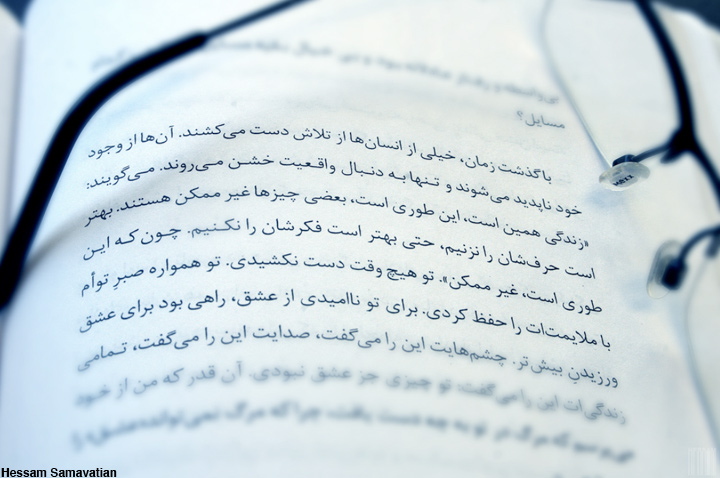 مسایل؟
با گذشت زمان، خیلی از انسان‌ها از تلاش دست می‌کشند. آن‌ها از وجود
خود ناپدید می‌شوند و تنها به دنبال واقعیت خشن می‌روند. می‌گویند:
«زندگی همین است، این طوری است، بعضی چیزها غیر ممکن هستند. بهتر
است حرف‌شان را نزنیم، حتی بهتر است فکرشان را نکنیم. چون که این
طوری است، غیر ممکن». تو هیچ وقت دست نکشیدی. تو همواره صبرِ توأم
با ملایمت‌ات را حفظ کردی. برای تو ناامیدی از عشق، راهی بود برای عشق
ورزیدنِ بیش‌تر. چشم‌هایت این را می‌گفت، صدایت این را می‌گفت، تمامی
زندگی‌ات این را می‌گفت: تو چیزی جز عشق نبودی. آن قدر که من از خود
می‌پرسم که مرگ در تو به چه دست یافت، چرا که مرگ نمی‌تواند
Hessam Samavatian